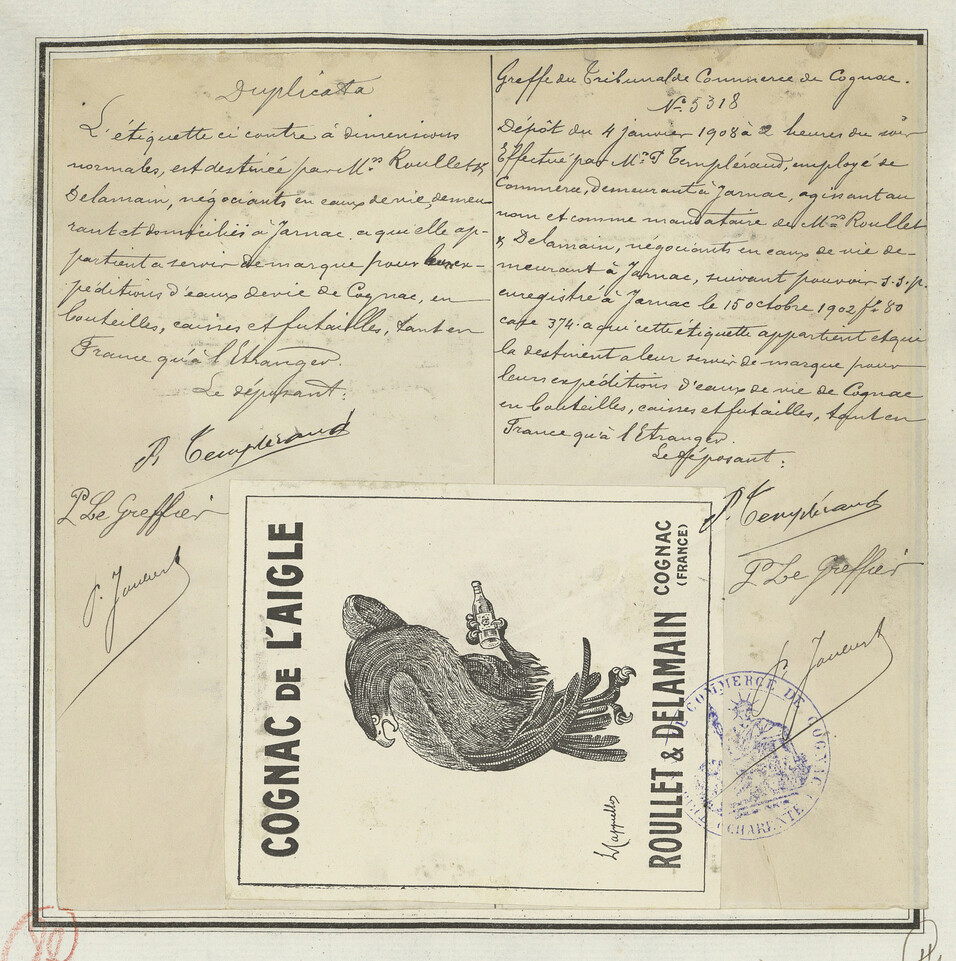 Duplicata
L'étiquette ci contre à dimensions
normales, est destinée par M.rs Roullet &
Delamain, négociants en eaux de vie, demeu-
rant et domiciliés à Jarnac a qui elle ap-
partient a servir de marque pour leurs ex-
péditions d'eaux de vie de Cognac, en
bouteilles, caisses et futailles, tant en
France qu'à l'Etranger.
Le déposant:
P. Templéraud
P Le Greffier
Greffe du Tribunal de Commerce de Cognac.
N.° 5318
Dépôt du 4 janvier 1908 à 2 heures du soir
Effectué par M.r P Templéraud, employé de
Commerce, demeurant à Jarnac, agissant au
nom et comme mandataire de M.rs Roullet
& Delamain, négociants en eaux de vie de-
meurant à Jarnac, suivant pouvoir s.s.p.
enregistré à Jarnac le 15 octobre 1902 f° 80
case 374. a qui cette étiquette appartient et qui
la destinent a leur servir de marque pour
leurs expéditions d'eaux de vie de Cognac
en bouteilles, caisses et futailles, tant en
France qu'à l'Etranger.
Le déposant:
P. Templéraud
P Le Greffier
COGNAC DE L'AIGLE
ROULLET & DELAMAIN COGNAC
(FRANCE)
DE COMMERCE DE COGNAC
CHARENTE